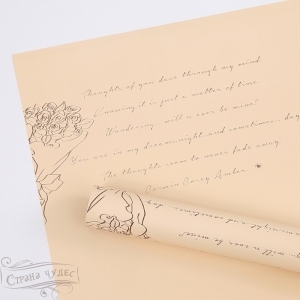 Thoughts of you dace through my mind.
Knowing it is just a matter of time.
Wondering will u ever be mine?
You are in my dreams night and sometimes day
The thoughts seem to never fade away.
Amber
will u ever be mine?
night and sometimes day
Страна чудес